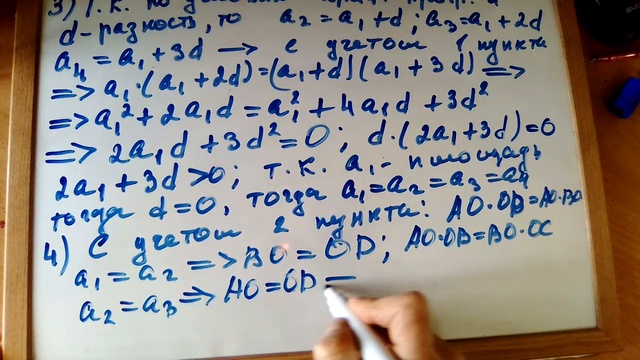 3) Т.к. по
d-разность, то a₂ = a₁ + d; a₃ = a₁ + 2d
a₄ = a₁ + 3d → с учетом 1 пункта
=> a₁·(a₁+2d)=(a₁+d)(a₁+3d) =>
=> a₁² + 2a₁d = a₁² + 4a₁d + 3d²
=> 2a₁d + 3d² = 0; d·(2a₁+3d)=0
2a₁ + 3d > 0; т.к. a₁ - площадь
тогда d=0, тогда a₁=a₂=a₃=a₄
4) С учетом 2 пункта: AO·OD=AO·BO
a₁ = a₂ => BO = OD; AO·OB=BO·OC
a₂ = a₃ => AO = OD —